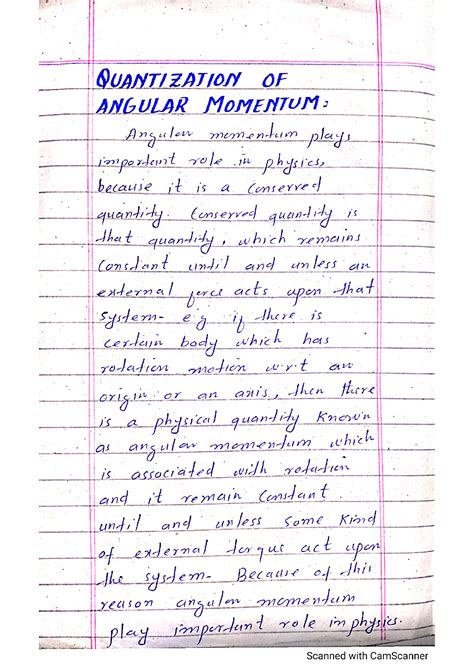 QUANTIZATION OF
ANGULAR MOMENTUM:
Angular momentum plays
important role in physics,
because it is a conserved
quantity. Conserved quantity is
that quantity, which remains
constant until and unless an
external force acts upon that
system- e.g if there is
certain body which has
rotation motion w.r.t an
origin or an axis, then there
is a physical quantity known
as angular momentum which
is associated with rotation
and it remain constant
until and unless some kind
of external torque act upon
the system- Because of this
reason angular momentum
play important role in physics.
Scanned with CamScanner